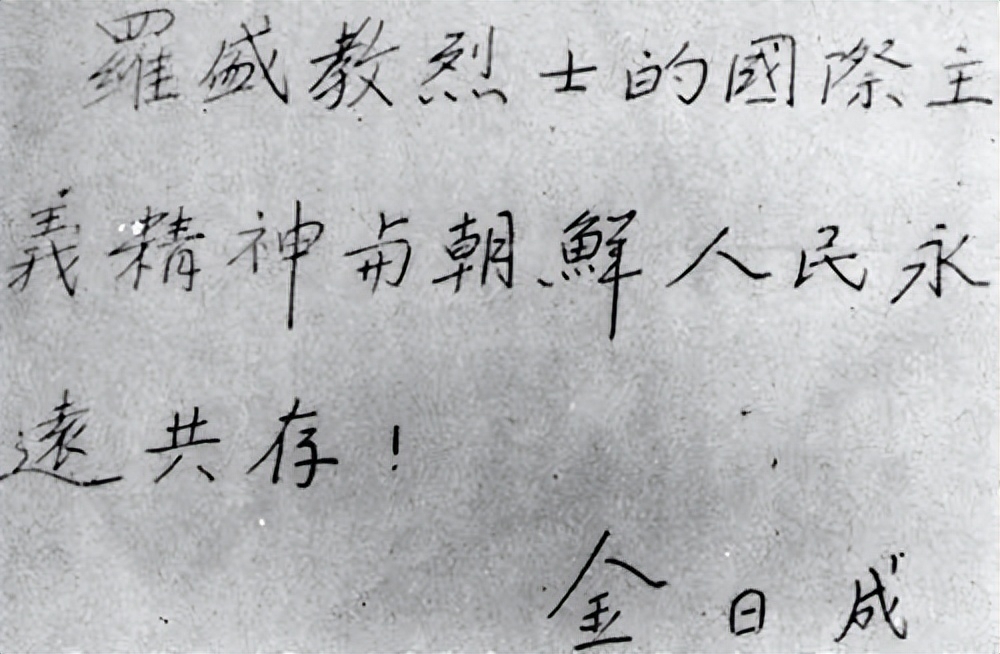 羅盛教烈士的國際主
義精神與朝鮮人民永
遠共存！
金日成